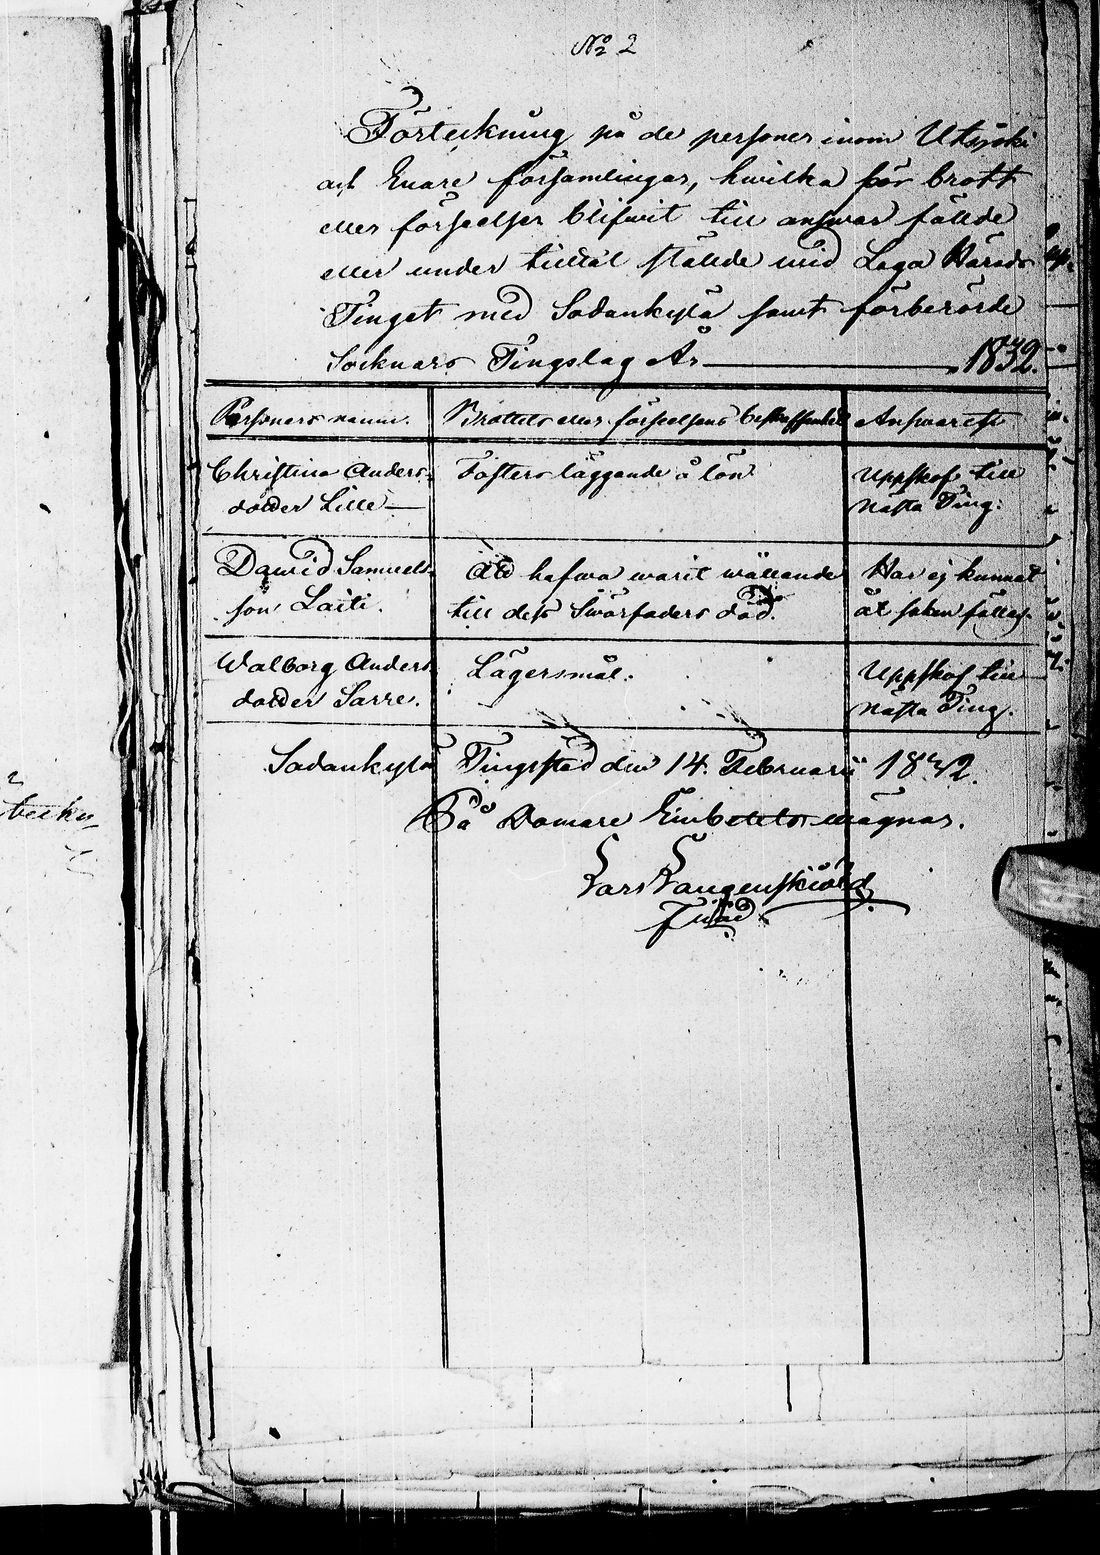 No 2
Förteckning på de personer inom Utsjoki
och Enare församlingar, hwilka för brott
eller förseelser blifwit till answar fällde
eller under tilltal ställde wid Laga Härads
Tinget med Sodankylä samt förberörde
Socknars Tingslag År 1832.
Personers namn. Brottets eller förseelsens beskaffenhet Answaret
Christina Anders- Fosters läggande å lön Uppskof till
dotter Lille nästa Ting.
Dawid Samuels- Att hafwa warit wållande Har ej kunnat
son Laiti. till dess Swärfaders död. åt saken fällas.
Walborg Anders Lägersmål. Uppskof till
dotter Sarre. nästa Ting.
Sodankylä Tingstad den 14. Februarii 1832.
På Domare Embetets wägnar.
Lars Langenskiöld
beskn